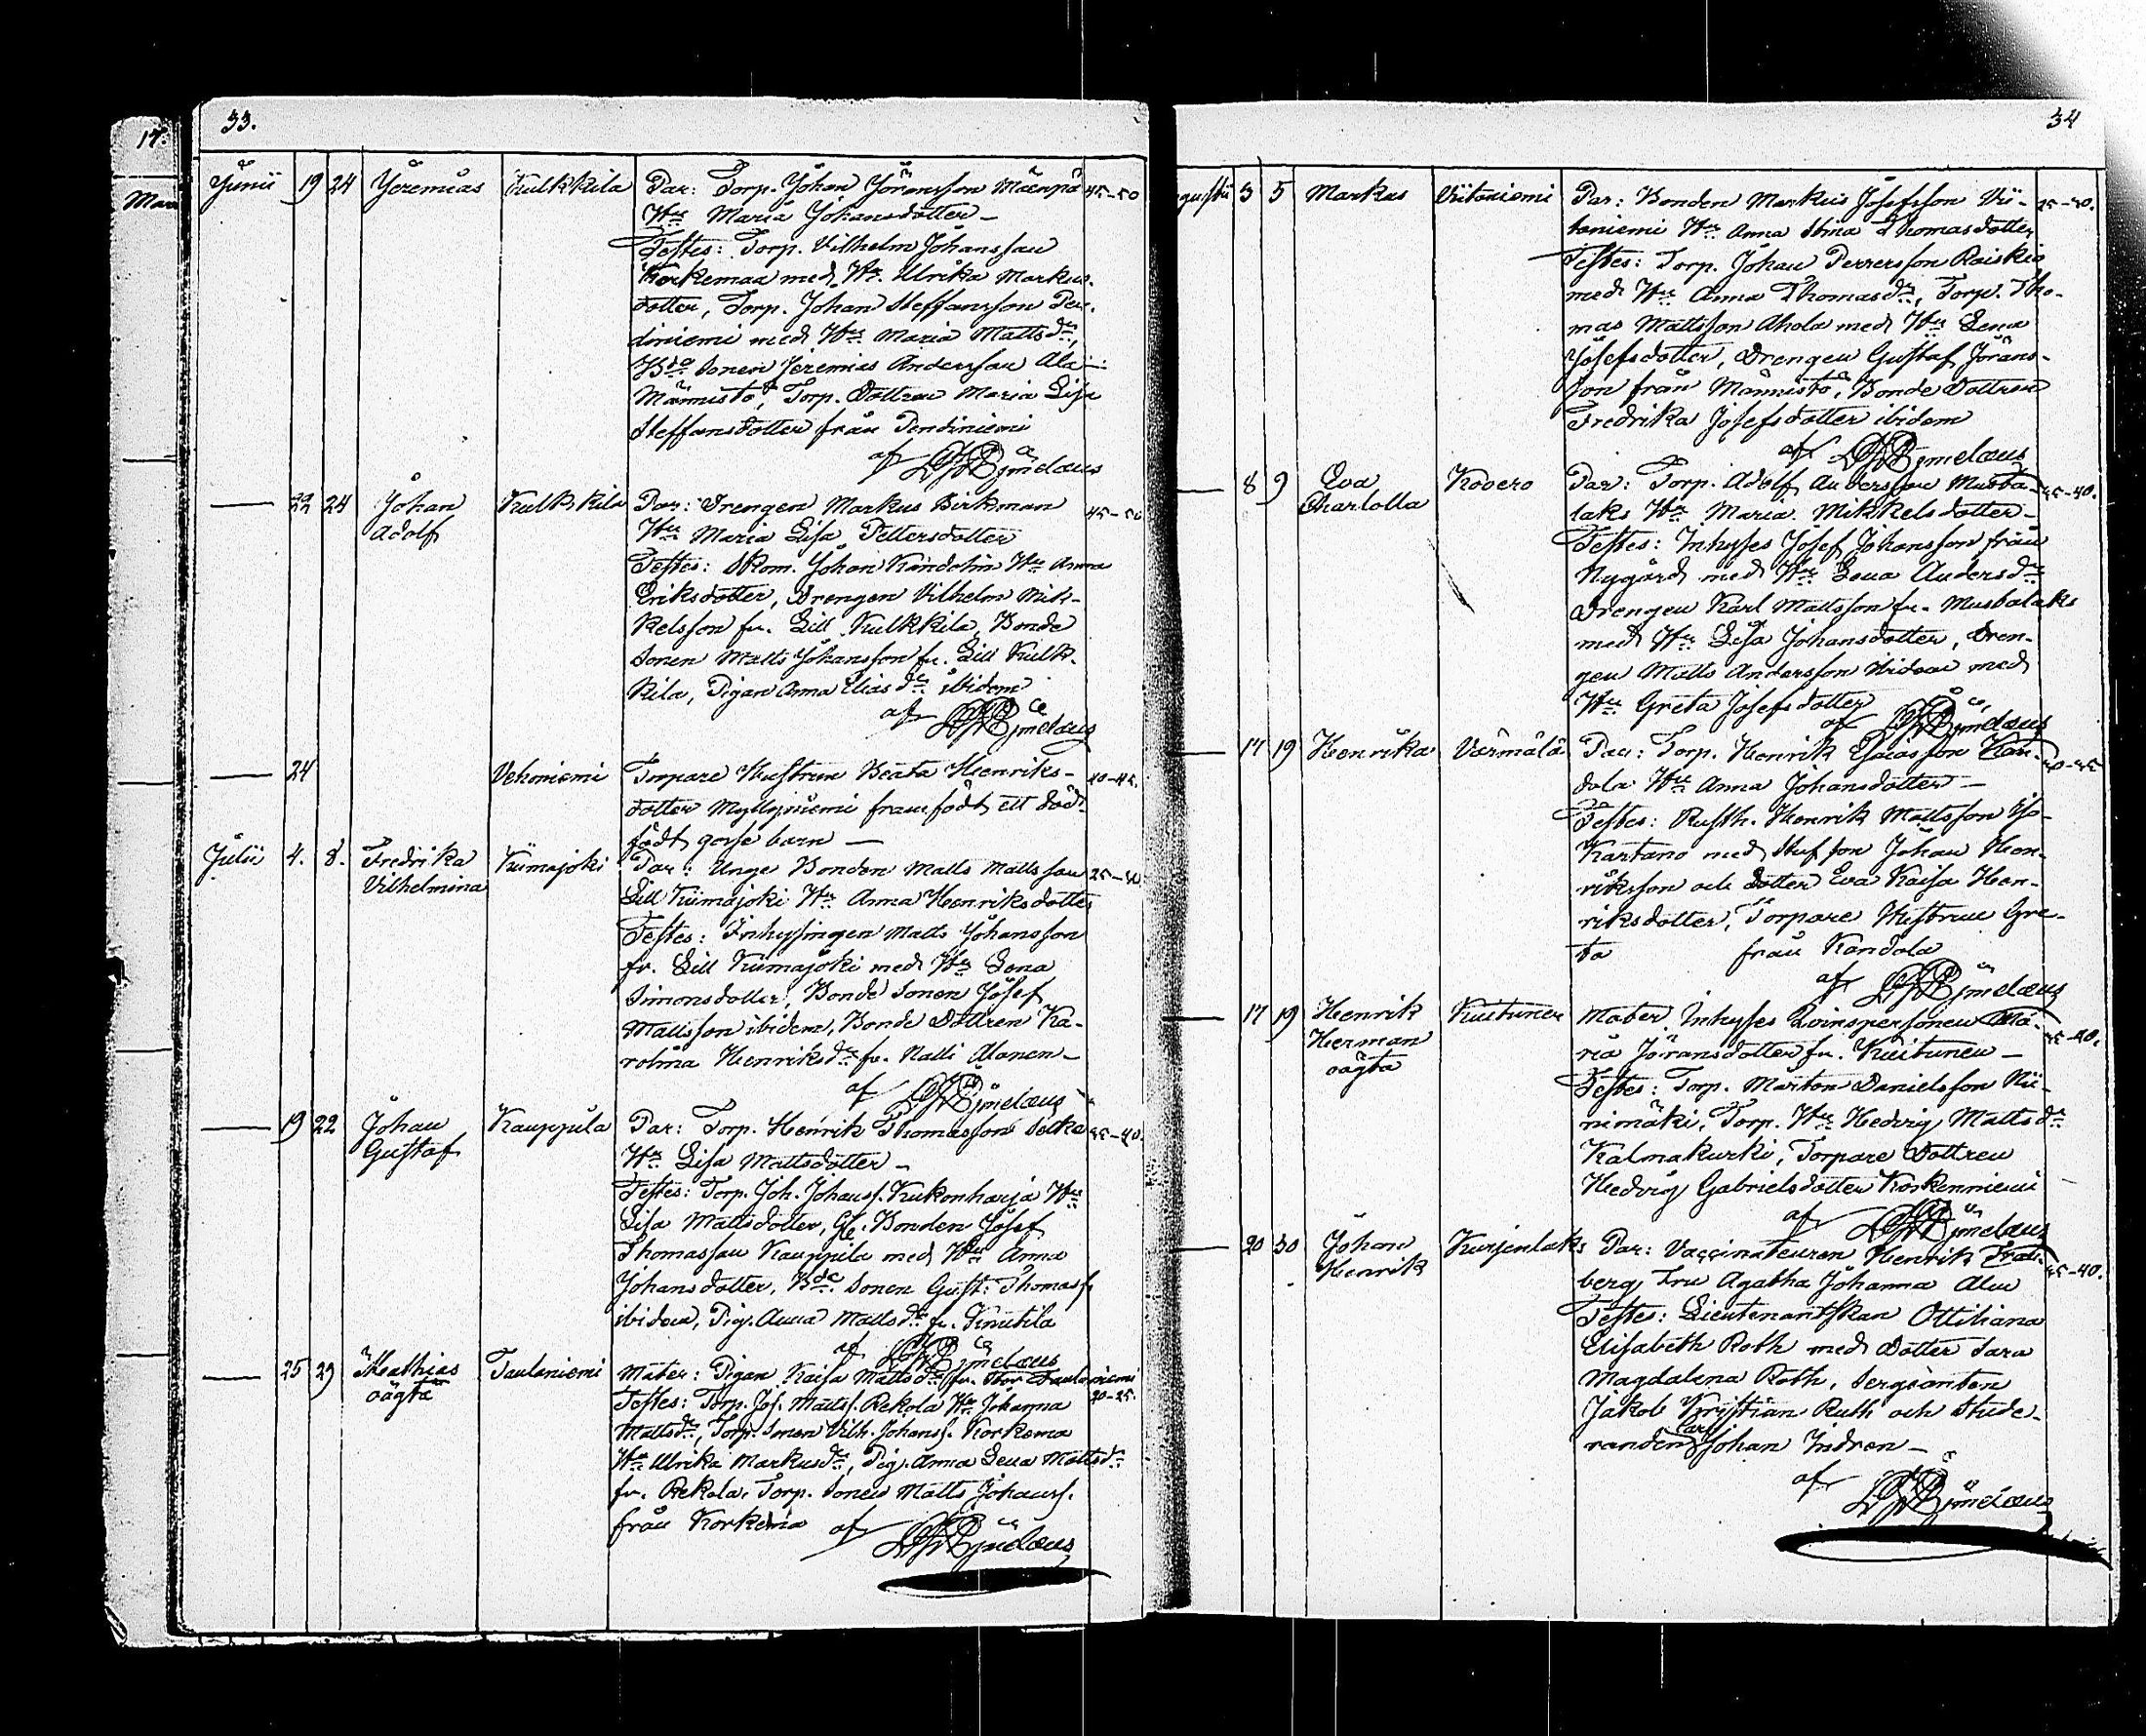 17.
Mar
33.
Junii 19 24 Jeremias Kulkkila Par: Torp. Johan Jöransson Mäenpä 45-50
Hu Maria Johansdotter –
Testes: Torp. Vilhelm Johansson
Korkemaa med Hu. Ulrika Markus-
dotter, Torp. Johan Steffansson Pen-
diniemi med Hu Maria Mattsdr,
Bde Sonen Jeremias Andersson Ala-
Männistö, Torp. Dottren Maria Lisa
Steffansdotter från Pendiniemi
af
— 22 24 Johan Kulkkila Par: Drengen Markus Birkman 45-50
Adolf Hu Maria Lisa Pettersdotter
Testes: Skom. Johan Kandolin Hu Anna
Eriksdotter, Drengen Vilhelm Mik-
kelsson fr. Lill Kulkkila, Bonde
Sonen Matts Johansson fr. Lill Kulk-
kila, Pigan Anna Eliasdr ibidem
af
— 24 Vehoniemi Torpare Hustrun Beata Henriks- 40-45.
dotter Myllyniemi framfödt ett död-
födt gosse barn —
Julii 4. 8. Fredrika Kiimajoki Par: Unge Bonden Matts Mattsson 25-30
Vilhelmina Lill Kiimajoki Hu Anna Henriksdotter
Testes: Inhysingen Matts Johansson
fr. Lill Kiimajoki med Hu Lena
Simonsdotter, Bonde Sonen Josef
Mattsson ibidem, Bonde Dottren Ka-
rolina Henriksdr fr. Natti Alanen –
af
— 19 22 Johan Kauppila Par: Torp. Henrik Thomasson 35-40.
Gustaf Hu Lisa Mattsdotter –
Testes: Torp. Joh. Johanss. Kukonharja Hu
Lisa Mattsdotter, Gl. Bonden Josef
Thomasson Kauppila med Hu Anna
Johansdotter, Bde Sonen Gust: Thomass.
ibidem, Pig. Anna Mattsdr fr. Knutila
af
— 25 29 Mathias Taulaniemi Mater: Pigan Kaisa Mattsdr fr. Stor Taulaniemi
oägta Testes: Torp. Jos. Matts. Rekola Hu Johanna 20-25.
Mattsdr, Torp. Sonen Vilh. Johanss. Korkema
Hu Ulrika Markusdr, Pig. Anna Lena Mattsdr
fr. Rekola, Torp. Sonen Matts Johanss.
från Korkema af
34
gustii 3 5 Markus Viitaniemi Par: Bonden Markus Josefsson Vii- 25-30.
taniemi Hu Anna Stina Thomasdotter
Testes: Torp. Johan Perersson Raiskio
med Hu Anna Thomasdr, Torp. Tho-
mas Mattsson Ahola med Hu Lena
Josefsdotter, Drengen Gustaf Jörans-
son från Männistö, Bonde Dottren
Fredrika Josefsdotter ibidem
af
— 8 9 Eva Kovero Par: Torp. Adolf Andersson Musta- 35-40.
Charlotta laks Hu Maria Mikkelsdotter –
Testes: Inhyses Josef Johansson från
Nygård med Hu Lena Andersdr
Drengen Karl Mattsson fr. Mustalaks
med Hu Lisa Johansdotter, Dren-
gen Matts Andersson ibidem med
Hu Greta Josefsdotter
af
— 17 19 Henrika Värmälä Par: Torp. Henrik Esaiasson Kan- 30-35
dola Hu Anna Johansdotter –
Testes: Rusth. Henrik Mattsson Iso-
Kartano med Stufson Johan Hen-
riksson och Dotter Eva Kaisa Hen-
riksdotter, Torpare Hustrun Gre-
ta från Kandola
af
— 17 19 Henrik Kuitunen Mater Inhyses Qvinspersonen Ma- 35-40.
Herman ria Jöransdotter fr. Kuitunen –
oägta Testes: Torp. Mårten Danielsson Nii-
nimäki, Torp. Hu Hedvig Mattsdr
Kalmakurki, Torpare Dottren
Hedvig Gabrielsdotter Koskenniemi
af
— 20 30 Johan Kurjenlaks Par: Vaccinateuren Henrik 35-40.
Henrik berg Fru Agatha Johanna Alm
Testes: Lieutenantskan Ottiliana
Elisabeth Roth med Dotter Sara
Magdalena Roth, Sergianten
Jakob Kristian Ruth och Stude-
randen Carl Johan Indren –
af